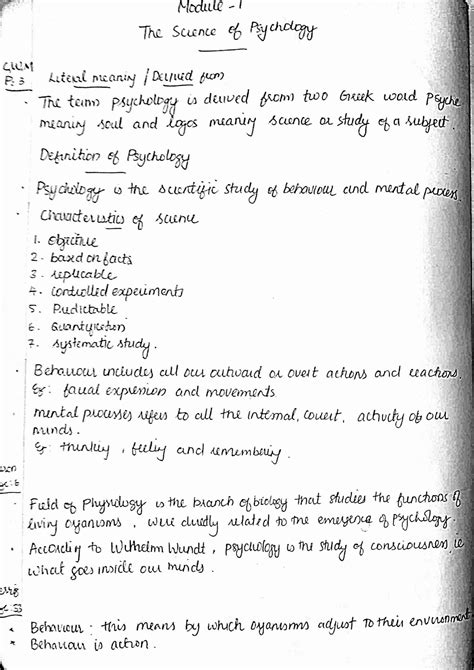 Module - 1
The Science of Psychology
P. 3
Literal meaning / Derived from
· The term psychology is derived from two Greek word psyche
meaning soul and logos meaning science or study of a subject.
Definition of Psychology
· Psychology is the scientific study of behaviour and mental process.
· Characteristics of science
1. Objective
2. based on facts
3. replicable
4. controlled experiments
5. Predictable
6. Quantification
7. systematic study.
· Behaviour includes all our outward or overt actions and reactions.
Eg: facial expression and movements
mental processes refers to all the internal, covert, activity of our
minds.
Eg: thinking, feeling and remembering.
· Field of Physiology is the branch of biology that studies the functions of
living organisms, were directly related to the emergence of psychology.
· According to Wilhelm Wundt, psychology is the study of consciousness ie
what goes inside our minds.
· Behaviour: this means by which organisms adjust to their environment
· Behaviour is action.